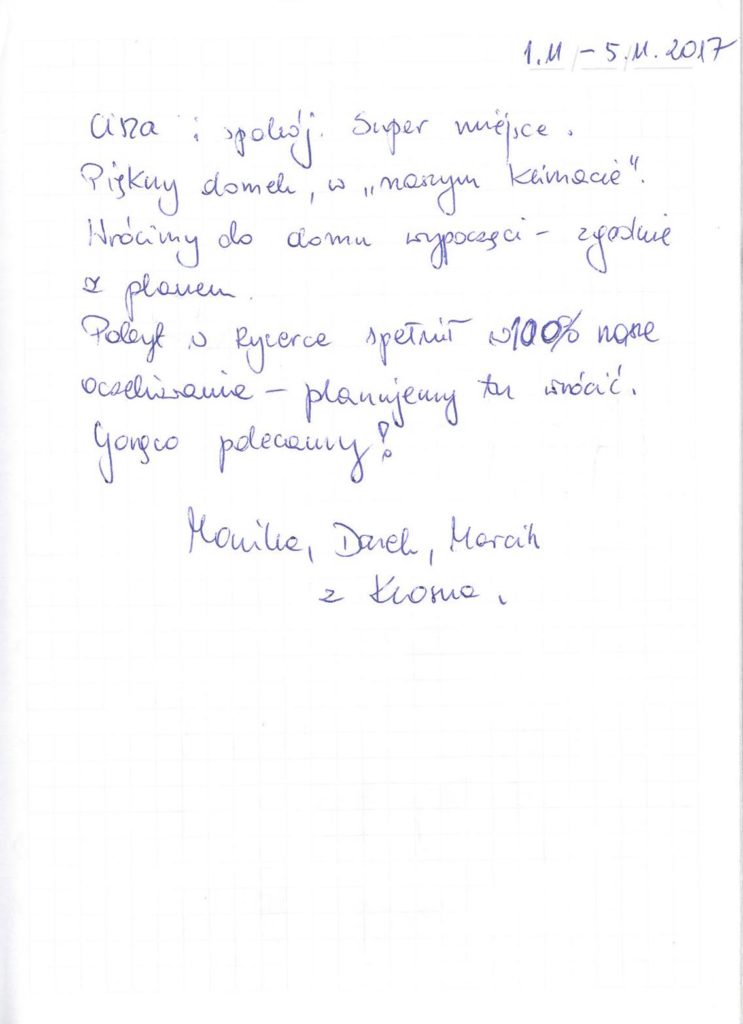 1.11 – 5.11.2017
Cisza i spokój. Super miejsce.
Piękny domek, w „naszym klimacie".
Wrócimy do domu wypoczęci – zgodnie
z planem.
Pobyt w Rycerce spełnił w 100% nasze
oczekiwania – planujemy tu wrócić.
Gorąco polecamy!
Monika, Darek, Marcin
z Krosna.